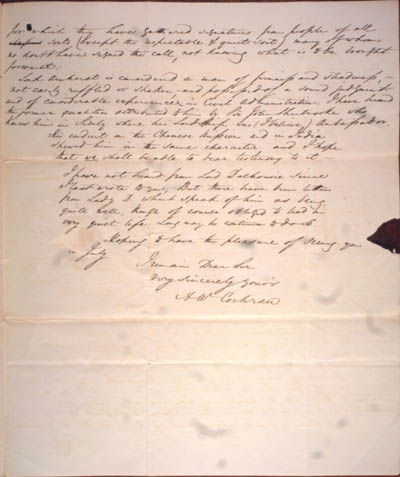 for which they have gathered signatures from people of all
sorts (except the respectable & quiet sort) many of whom
no doubt have signed the call, not knowing what is to be brought
forward.
Lord Amherst is considered a man of firmness and steadiness, -
not easily ruffled or shaken - and possessed of a sound judgment
and of considerable experience in Civil Administration. I have heard
the former qualities attributed to him by Sir John Sherbrooke who
knew him in Sicily where his Lordship was, I believe, Ambassador.
His conduct on the Chinese mission and in India
shewed him in the same character, and I hope
that we shall be able to bear testimony to it -
I have not heard from Lord Dalhousie since
I last wrote to you, But there have been letters
from Lady D. which speak of him as being
quite well, though of course obliged to lead a
very quiet life. Long may he continue to do so.
Hoping to have the pleasure of seeing you
in July
I remain Dear Sir
Very sincerely yours
A W Cochran